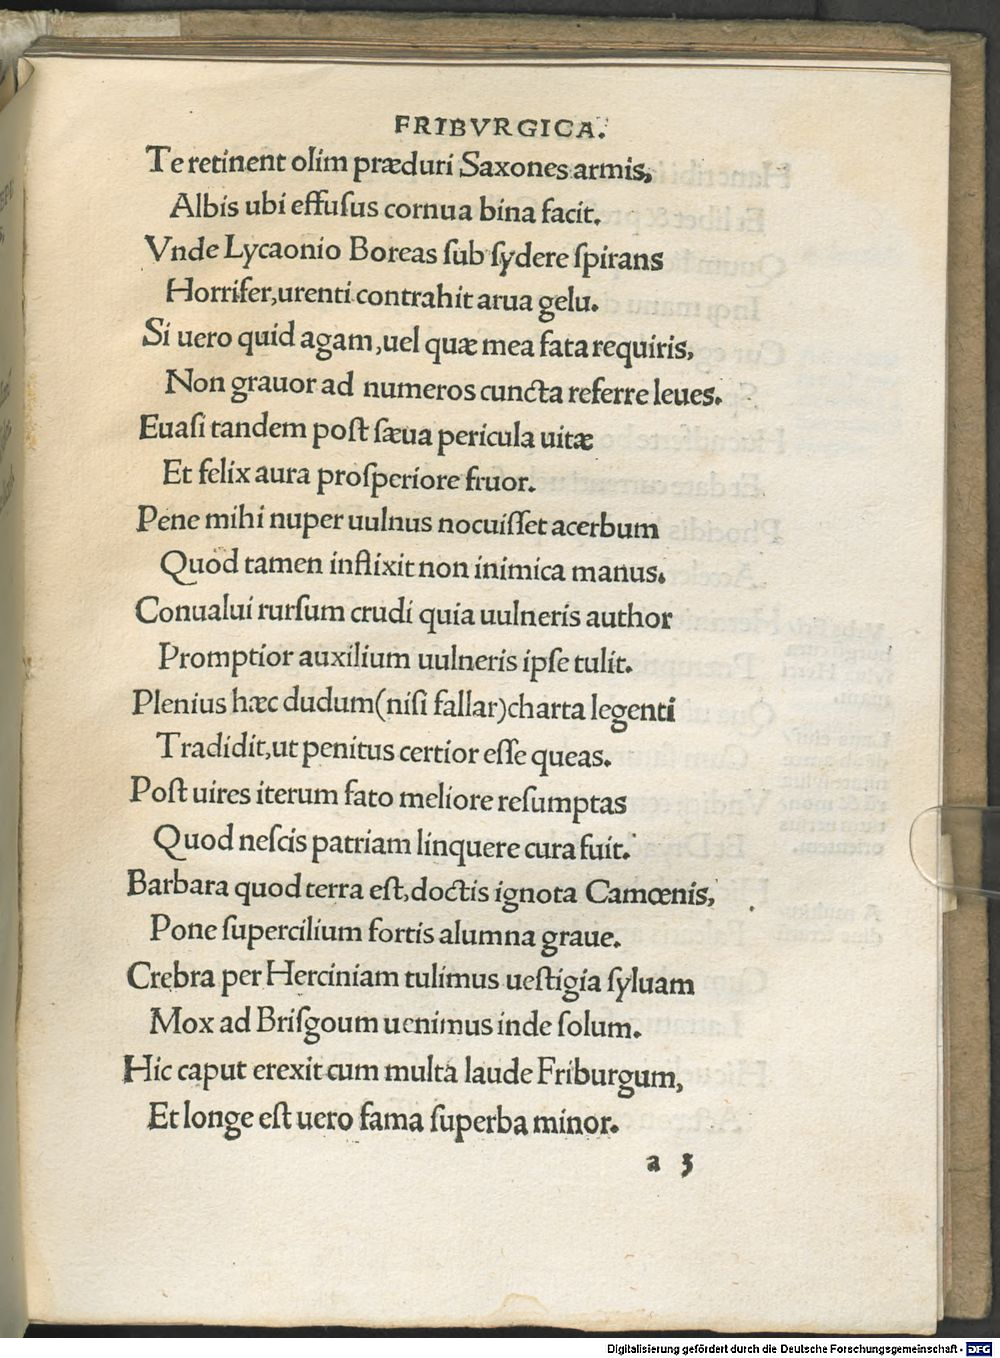 FRIBVRGICA.
Te retinent olim præduri Saxones armis,
Albis ubi effuſus cornua bina facit.
Vnde Lycaonio Boreas ſub ſydere ſpirans
Horrifer,urenti contrahit arua gelu.
Si uero quid agam,uel quæ mea fata requiris,
Non grauor ad numeros cuncta referre leues.
Euaſi tandem poſt ſæua pericula uitæ
Et felix aura proſperiore fruor.
Pene mihi nuper uulnus nocuiſſet acerbum
Quod tamen inflixit non inimica manus.
Conualui rurſum crudi quia uulneris author
Promptior auxilium uulneris ipſe tulit.
Plenius hæc dudum(niſi fallar)charta legenti
Tradidit,ut penitus certior eſſe queas.
Poſt uires iterum fato meliore reſumptas
Quod neſcis patriam linquere cura fuit.
Barbara quod terra eſt,doctis ignota Camœnis,
Pone ſupercilium fortis alumna graue.
Crebra per Herciniam tulimus ueſtigia ſyluam
Mox ad Briſgoum uenimus inde ſolum.
Hic caput erexit cum multa laude Friburgum,
Et longe eſt uero fama ſuperba minor.
a 3
Digitalisierung gefördert durch die Deutsche Forschungsgemeinschaft - DFG